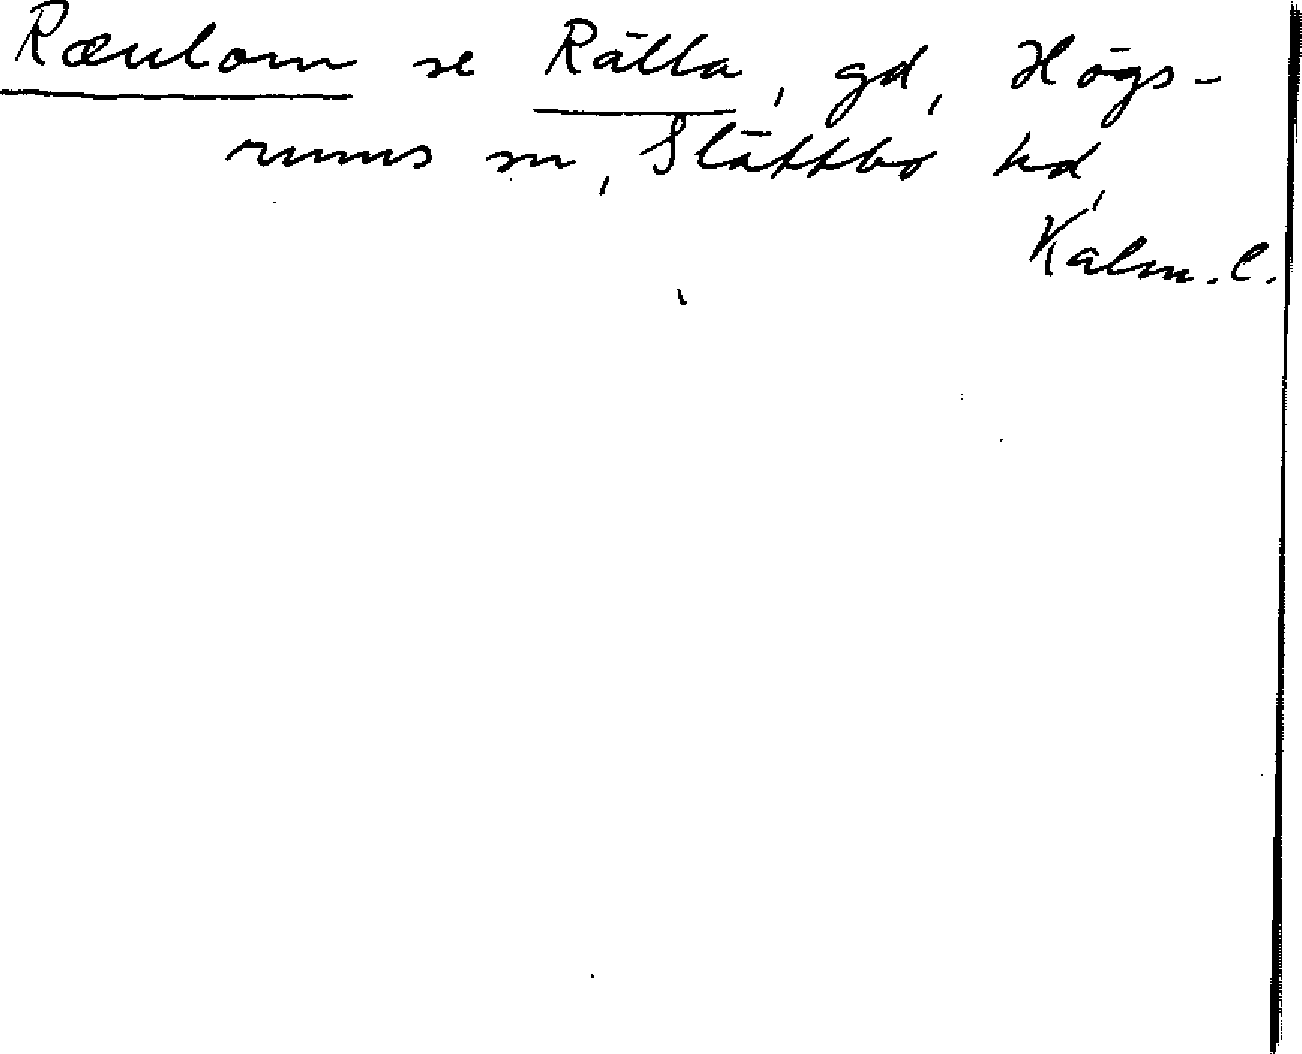 Rænlom se Rälla, gd, Högs-
rums sn, Slättbo hd,
Kalm. l.